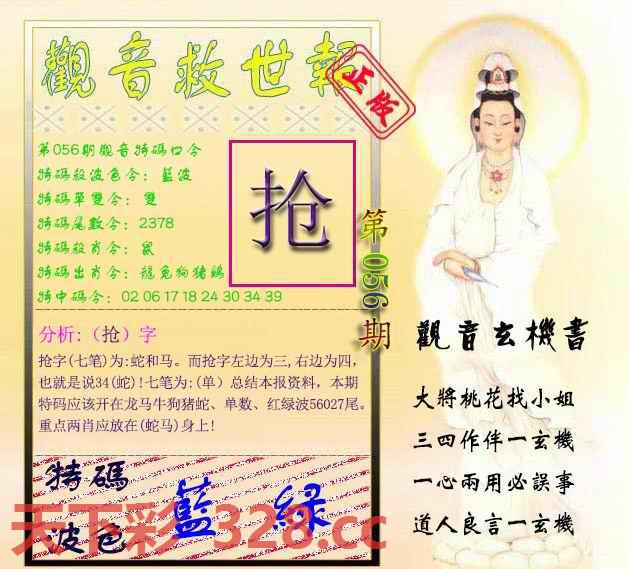 觀音救世報
正版
第056期觀音特碼口令
特碼殺波色令：藍波
特碼單雙令：雙
特碼尾數令：2378
特碼殺肖令：鼠
特碼出肖令：龍兔狗猪鷄
特中碼令：02 06 17 18 24 30 34 39
抢
第056期
分析:（抢）字
抢字(七笔)为:蛇和马。而抢字左边为三,右边为四,
也就是说34(蛇)!七笔为:(单）总结本报资料，本期
特码应该开在龙马牛狗猪蛇、单数、红绿波56027尾。
重点两肖应放在(蛇马)身上!
特碼
波色
藍 緑
天下彩1328.cc
觀音玄機書
大將桃花找小姐
三四作伴一玄機
一心兩用必誤事
道人良言一玄機